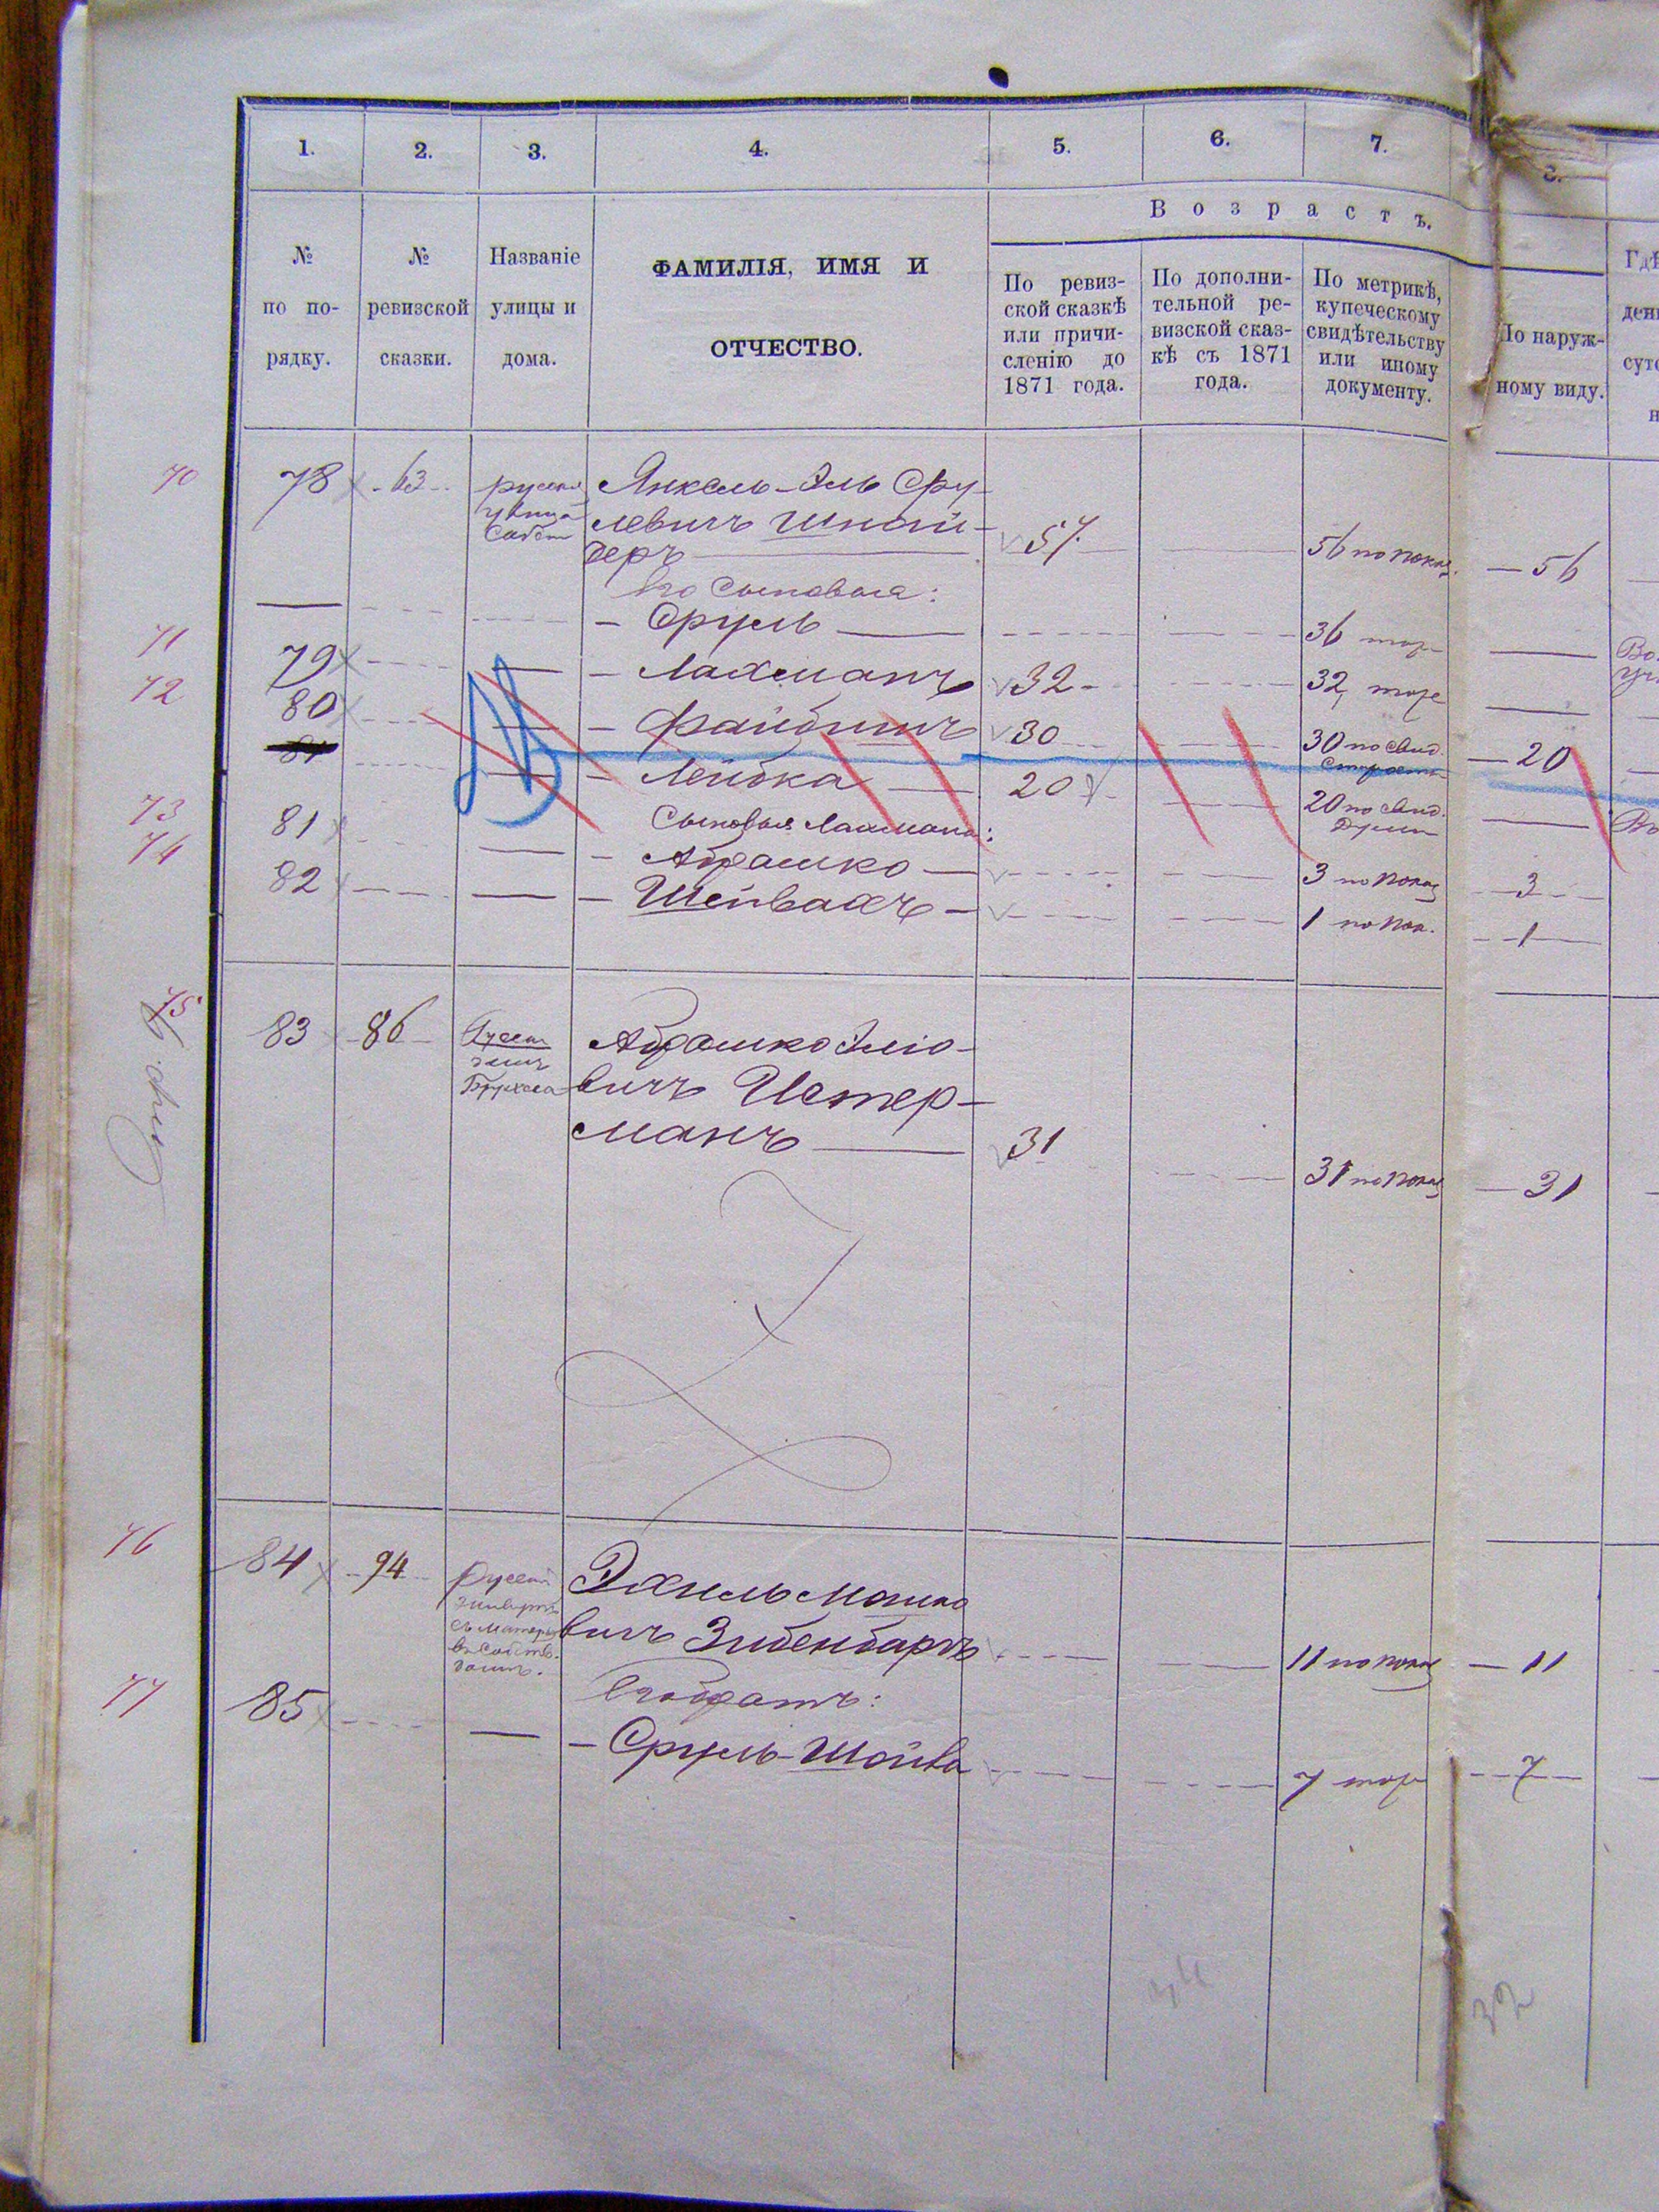 1. 2. 3. 4. 5. 6. 7. 8.
Возрастъ.
№ по порядку.
№ ревизской сказки.
Названіе улицы и дома.
ФАМИЛІЯ, ИМЯ И
ОТЧЕСТВО.
По ревиз-
ской сказкѣ
или причи-
сленію до
1871 года.
По дополни-
тельной ре-
визской сказ-
кѣ съ 1871
года.
По метрикѣ,
купеческому
свидѣтельству
или иному
документу.
По наруж-
ному виду.
70 78 63 Янкель-Эль Сру-
улица левичъ Шнай-
деръ 57 56 по показ. 56
Его сыновья:
Сруль 36 тоже
71 79 Лахманъ 32 32 тоже
72 80 Файбишъ 30 30 по свид. 20
81 Лейбка 20 20 по свид.
Сыновья Лахмана:
73 81 Абрашко 3 по показ 3
74 82 Шейвахъ 1 по пок. 1
75 83 86 Абрашко Эліо-
вичъ Истер-
манъ 31 31 по показ 31
76 84 94 Рахиль Мошко
вичъ Зибенбаръ 11 по показ 11
Его братъ:
77 85 Сруль-Шойва 7 тоже 7